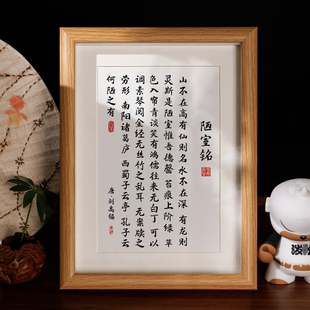 陋室铭
山不在高有仙则名水不在深有龙则
灵斯是陋室惟吾德馨苔痕上阶绿草
色入帘青谈笑有鸿儒往来无白丁可以
调素琴阅金经无丝竹之乱耳无案牍之
劳形南阳诸葛庐西蜀子云亭孔子云
何陋之有
唐刘禹锡